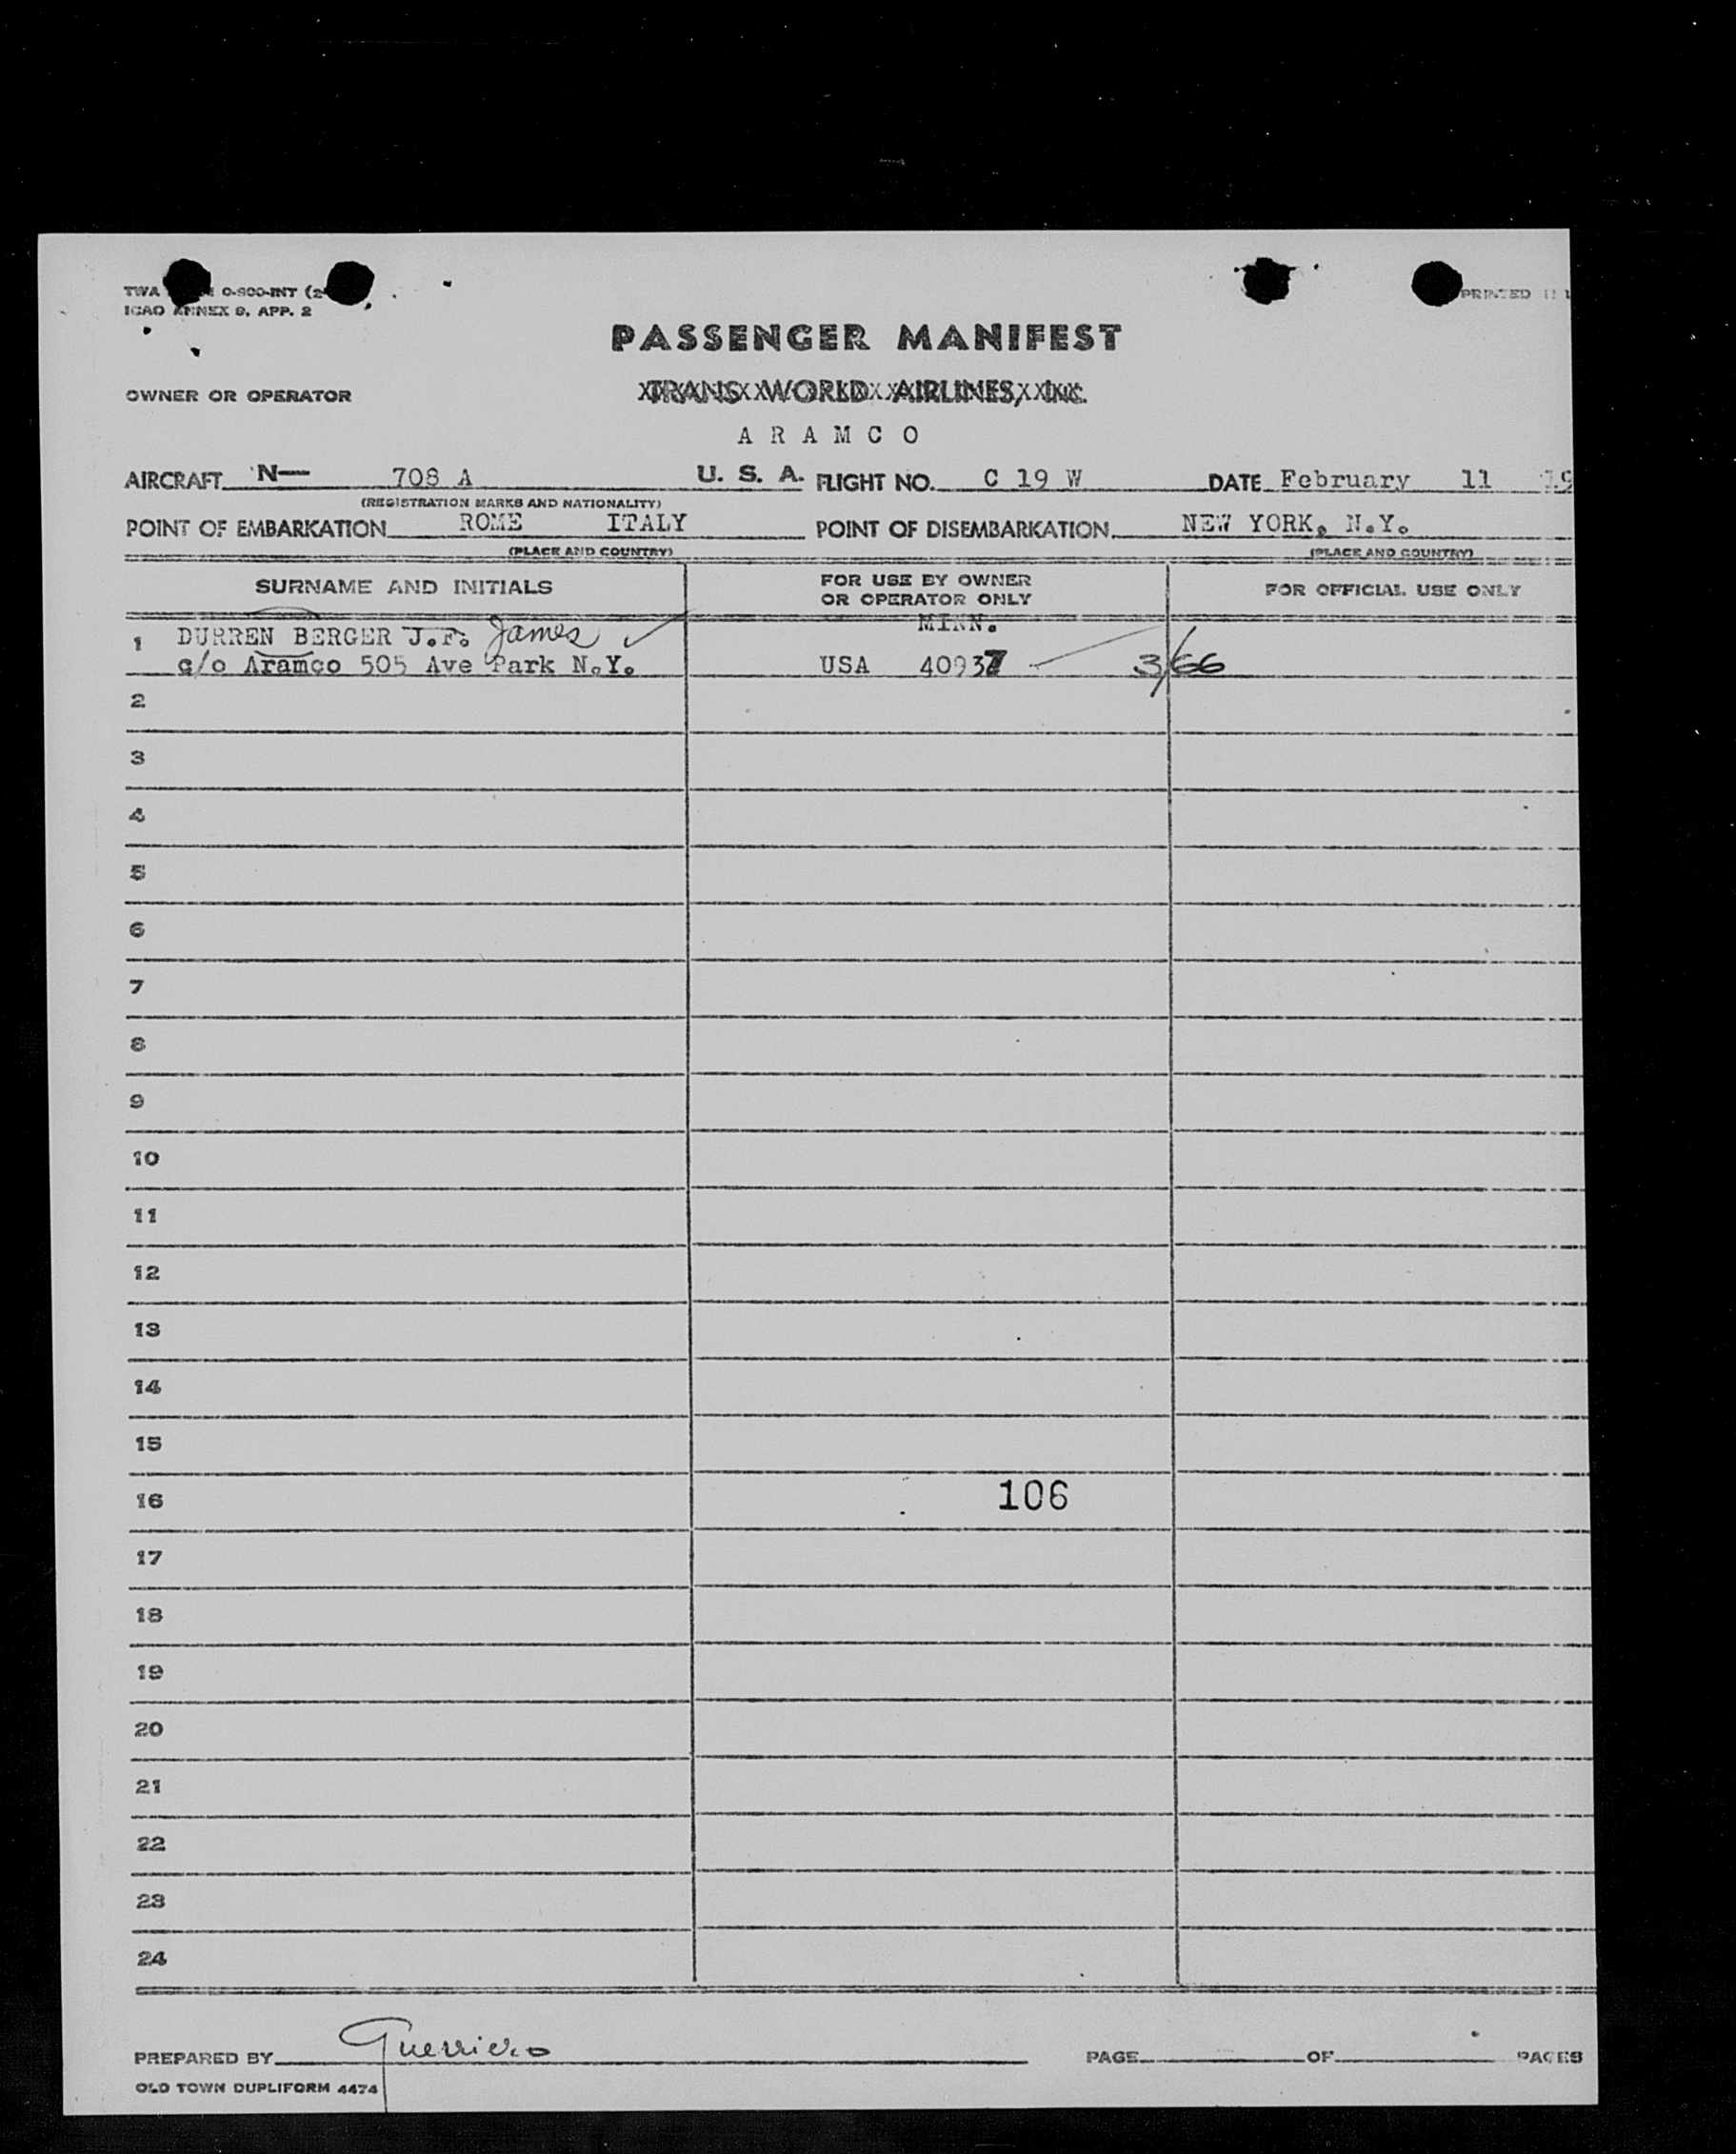 TWA O-800-INT (2
ICAO ANNEX 9, APP. 2
PRINTED
PASSENGER MANIFEST
OWNER OR OPERATOR TRANS WORLD AIRLINES, INC.
A R A M C O
AIRCRAFT N— 708 A U. S. A. FLIGHT NO. C 19 W DATE February 11 19
(REGISTRATION MARKS AND NATIONALITY)
POINT OF EMBARKATION ROME ITALY POINT OF DISEMBARKATION NEW YORK, N.Y.
(PLACE AND COUNTRY) (PLACE AND COUNTRY)
SURNAME AND INITIALS FOR USE BY OWNER OR OPERATOR ONLY FOR OFFICIAL USE ONLY
1 DURREN BERGER J.F. James MINN.
c/o Aramco 505 Ave Park N.Y. USA 40937 3/66
2
3
4
5
6
7
8
9
10
11
12
13
14
15
16 106
17
18
19
20
21
22
23
24
PREPARED BY Guerriero PAGE OF PAGES
OLD TOWN DUPLIFORM 4474